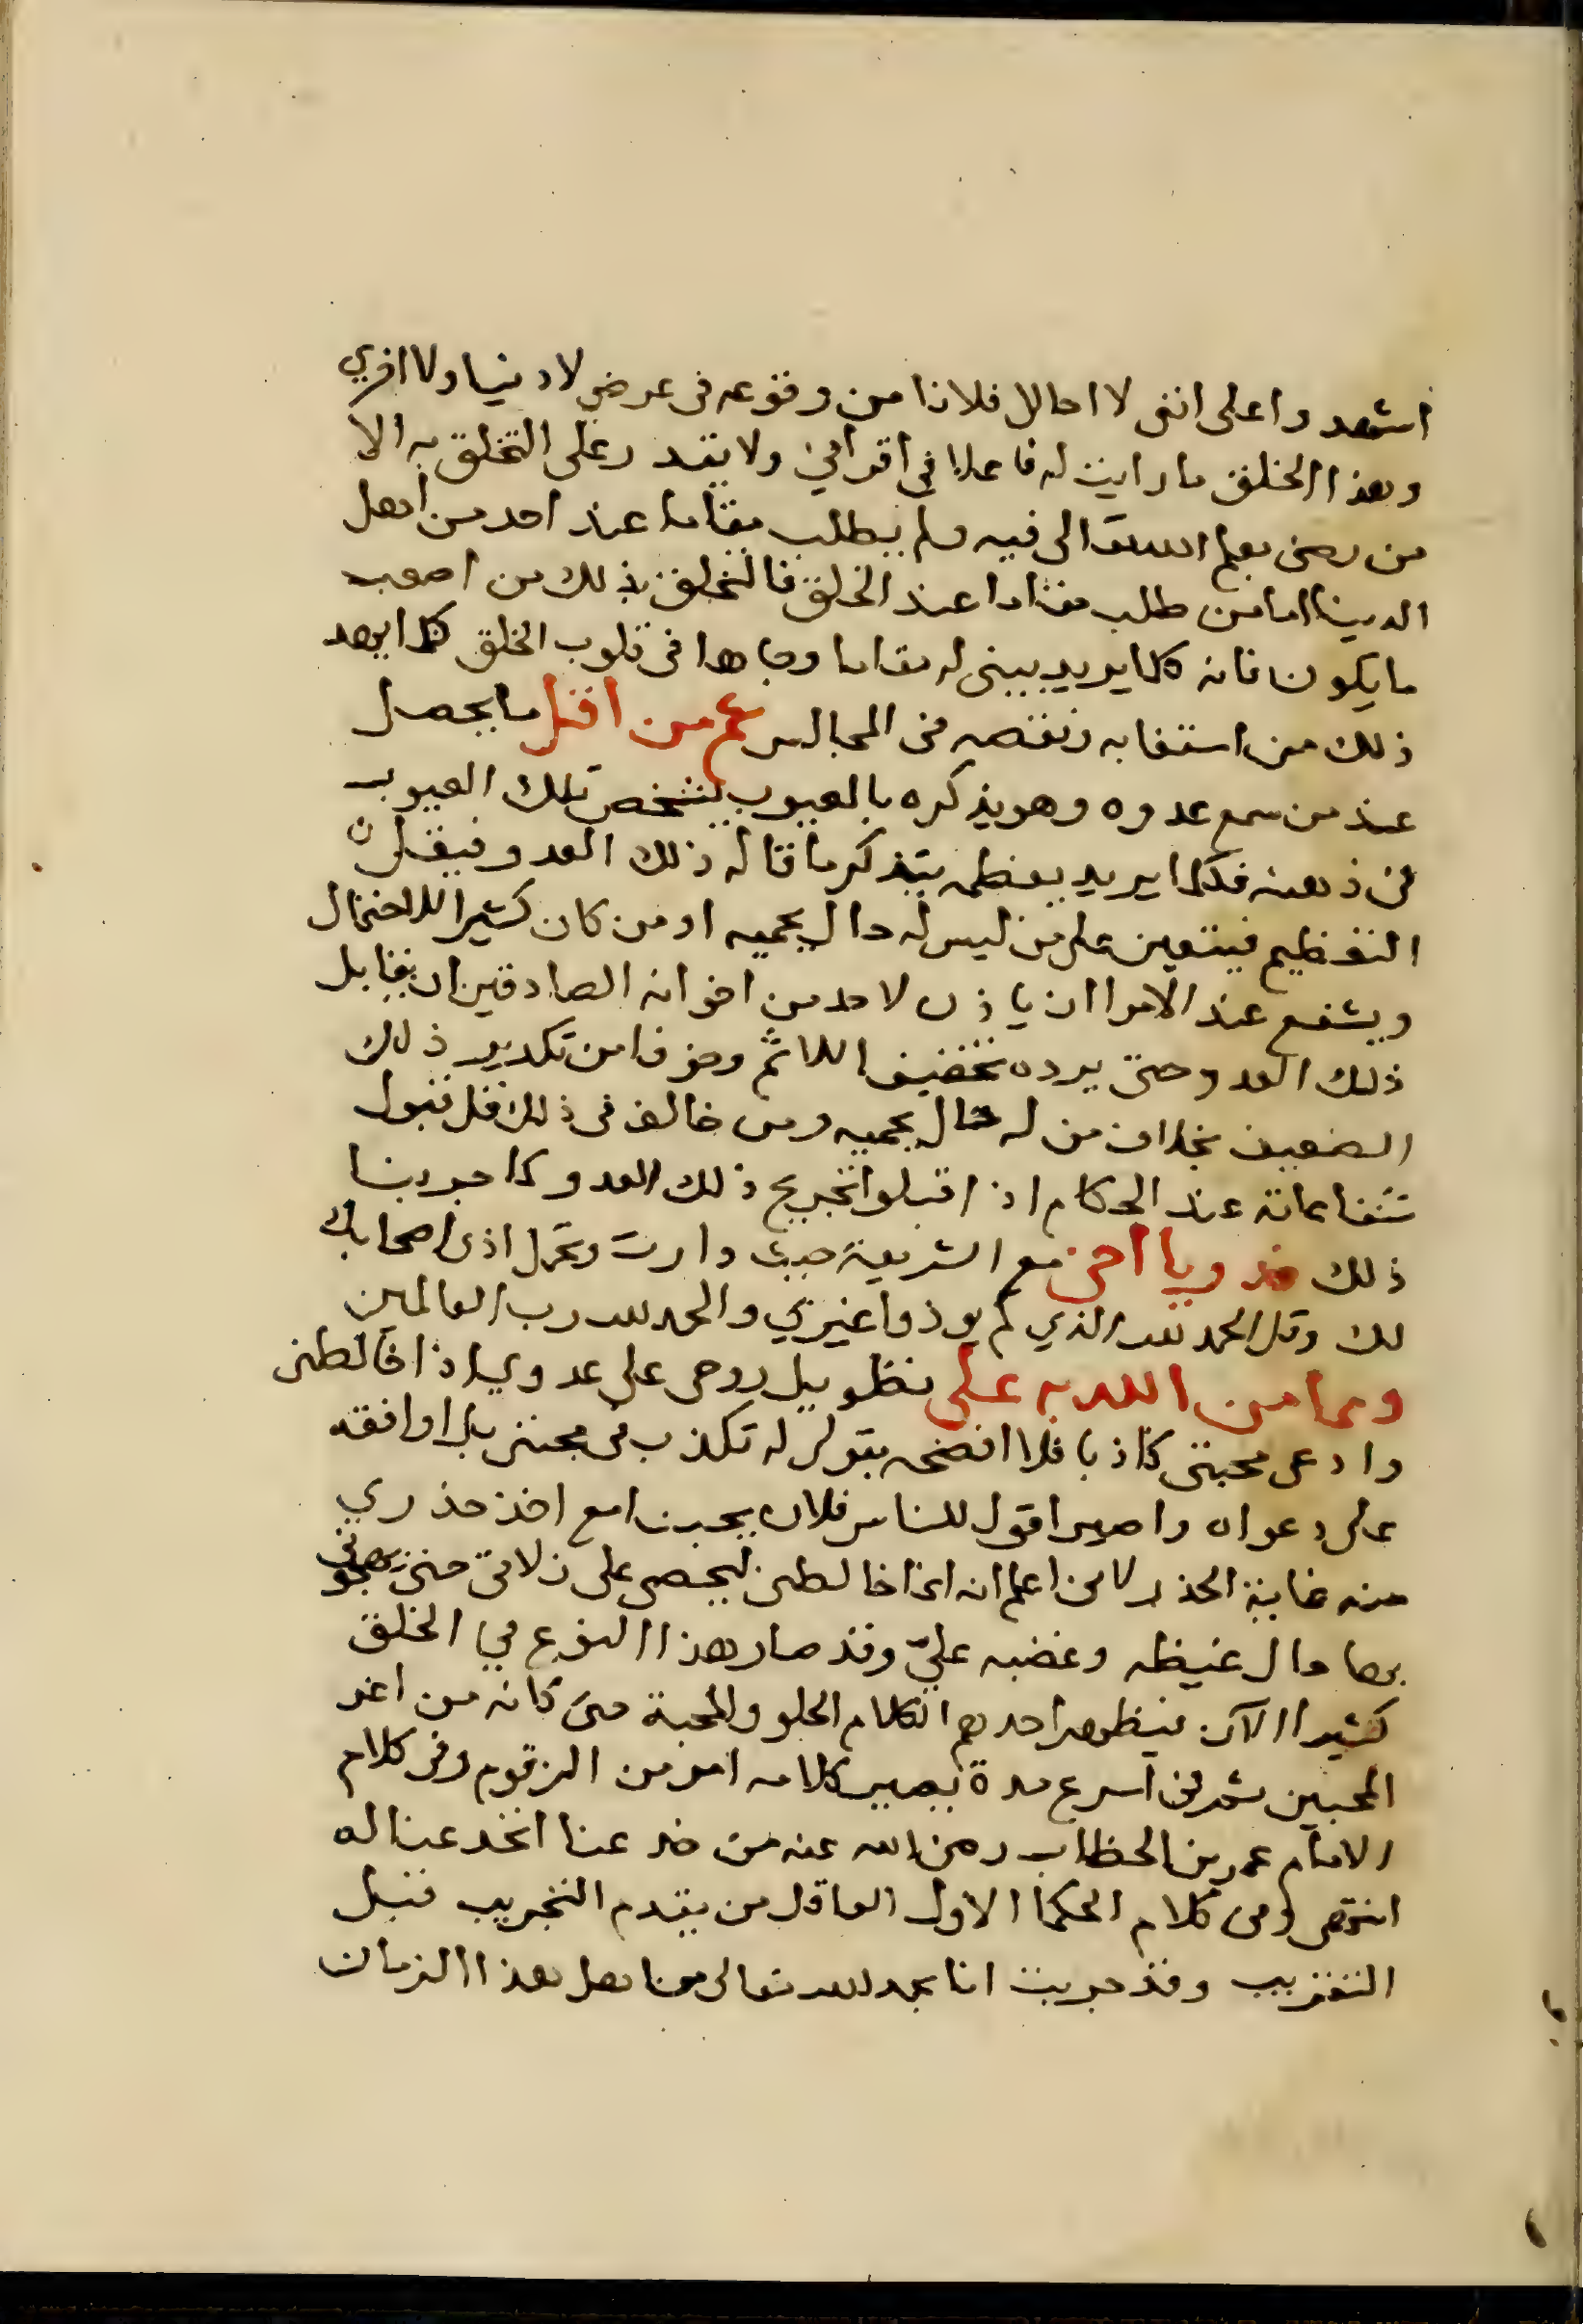 اشهدوا على انني لا احالل فلانا من وقوعه في عرضي لا دنيا ولا اخرى
وهذا الخلق ما رايت له فاعلا في اقراني ولا يقدر على التخلق به الا
من رضي بعلم الله تعالى فيه ولم يطلب مقاما عند احد من اهل
الدينا اما من طلب مقاما عند الخلق فالتخلق بذلك من اصعب
ما يكون فانه كلما يريد يبني له مقاما وجاها في قلوب الخلق كلما يهد
ذلك من استغابه ونقصه في المجالس ثم من اقل ما يحصل
عند من سمع عدوه وهو يذكره بالعيوب تشخص تلك العيوب
في ذهنه فكلما يريد يعظمه يتذكر ما قاله ذلك العدو فيقل
التعظيم فيتعين على من ليس له حال يحميه او من كان كثير الاحتمال
ويشفع عند الامرا ان ياذن لاحد من اخوانه الصادقين ان يقابل
ذلك العدو حتى يرده تخفيفا للاثم وخوفا من تكدير ذلك
الضعيف بخلاف من له حال يحميه ومن خالف في ذلك قل قبول
شفاعاته عند الحكام اذا قبلوا تجريح ذلك العدو كما جربنا
ذلك فدر يا اخي مع الشريعة حيث دارت وتحمل اذى اصحابك
لك وقل الحمد لله الذي لم يوذوا غيري والحمد لله رب العالمين
ومما من الله به علي تطويل روحي على عدوي اذا خالطني
وادعى محبتي كاذبا فلا افضحه بقولي له تكذب في محبتي بل اوافقه
على دعواه واصير اقول للناس فلان يحبنا مع اخذ حذري
منه غاية الحذر لاني اعلم انه انما خالطني ليحصي على زلاتي حتى يهجوني
بها حال غيظه وغضبه عليّ وقد صار هذا النوع في الخلق
كثيرا الآن فيظهر احدهم الكلام الحلو والمحبة حتى كانه من اعز
المحبين ثم في اسرع مدة يصير كلامه امر من الزقوم وفي كلام
الامام عمر بن الخطاب رضي الله عنه من خدعنا انخدعنا له
انتهى ومن كلام الحكما الاول العاقل من يقدم التجريب قبل
التقريب وقد جربت انا بحمد الله تعالى من اهل هذا الزمان